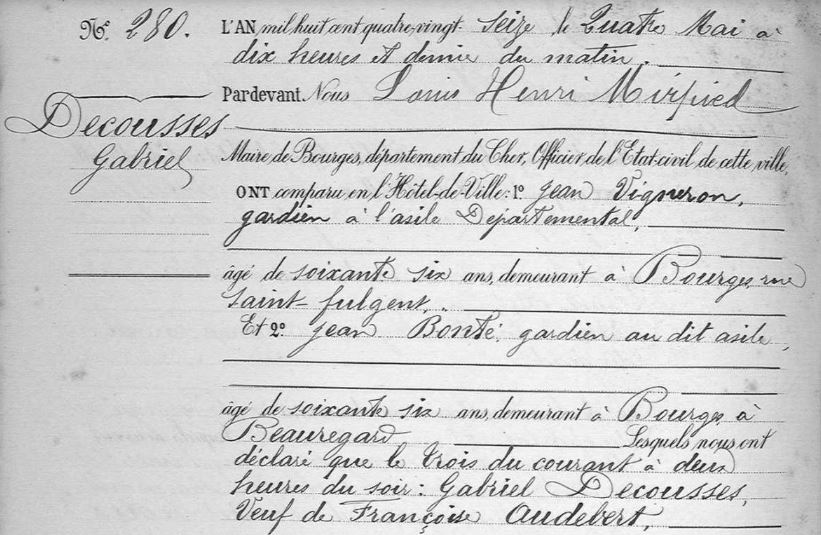 N° 280.
L'AN mil huit cent quatre-vingt- seize le Quatre Mai à
dix heures et demie du matin.
Pardevant Nous Louis Henri Mirpied
Decousses
Gabriel
Maire de Bourges, département du Cher, Officier de l'Etat-civil de cette ville,
ONT comparu en l'Hôtel-de-Ville: 1° Jean Vigneron,
gardien à l'asile Départemental,
âgé de soixante six ans, demeurant à Bourges, rue
Saint-fulgent,.
Et 2° Jean Bonté, gardien au dit asile,
âgé de soixante six ans, demeurant à Bourges, à
Beauregard Lesquels nous ont
déclaré que le trois du courant à deux
heures du soir: Gabriel Decousses,
Veuf de Françoise Audebert,